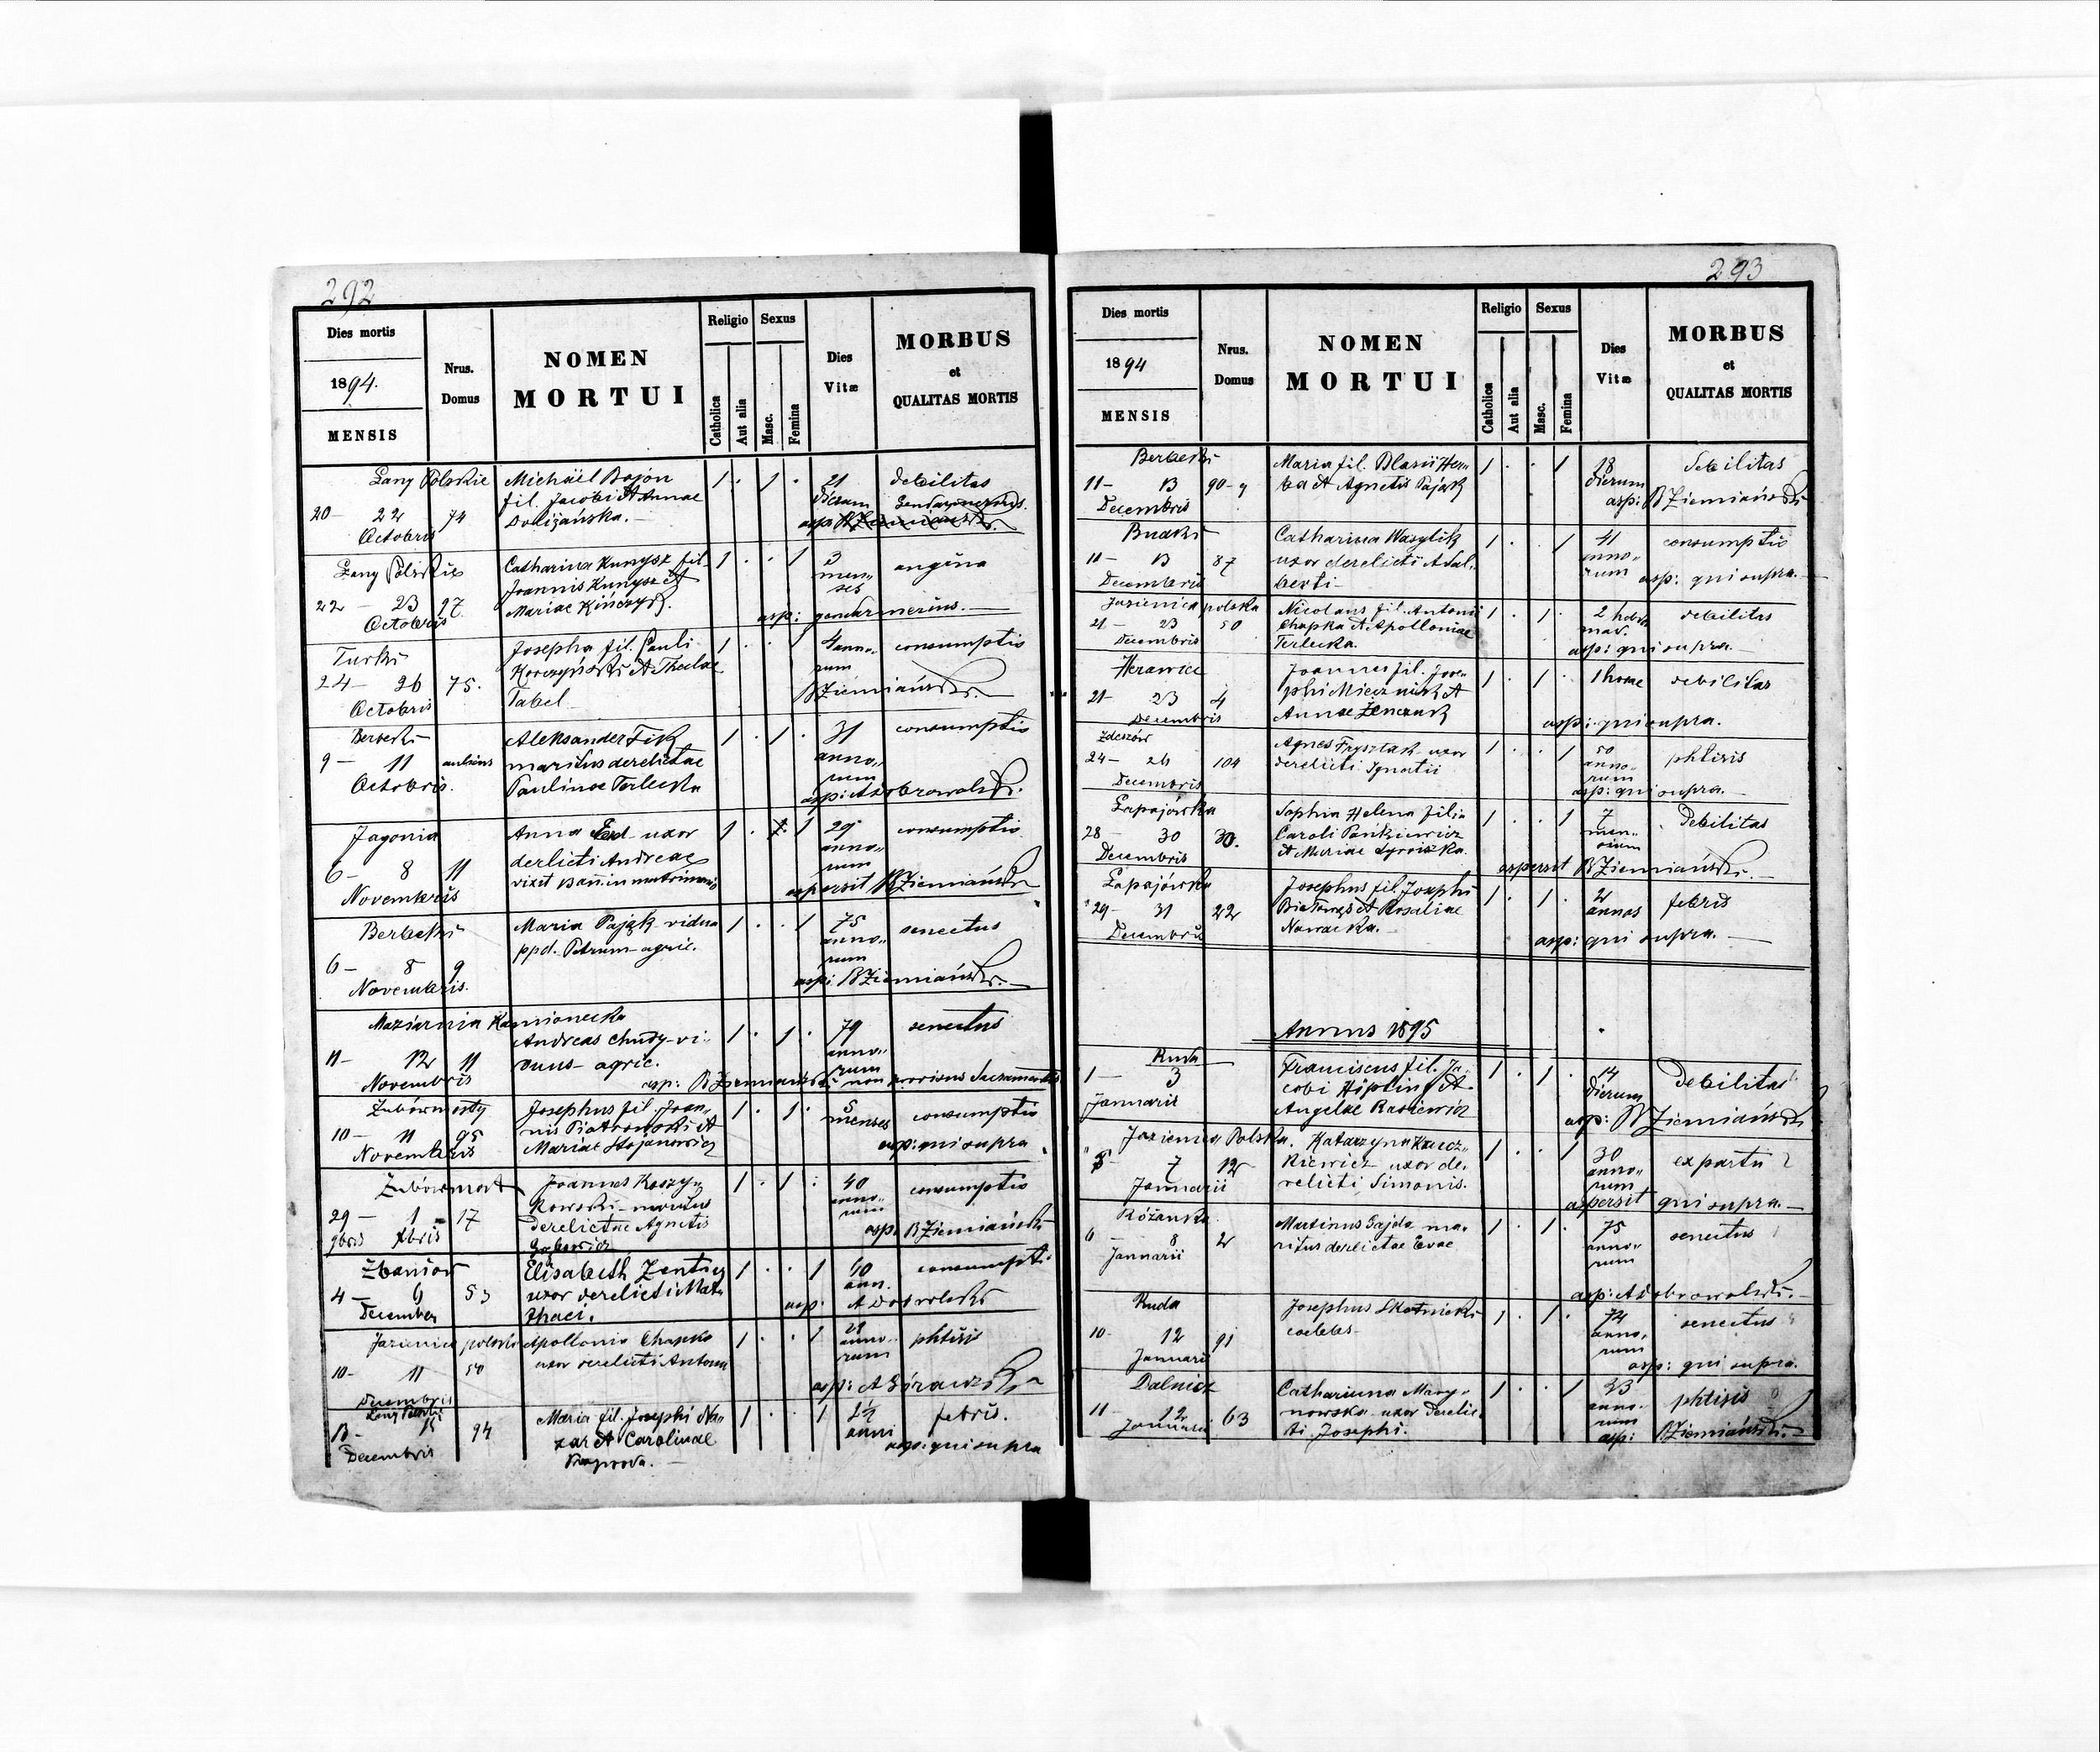 292
Dies mortis
1894.
MENSIS
Nrus.
Domus
NOMEN
MORTUI
Religio
Sexus
Catholica
Aut alia
Masc.
Femina
Dies
Vitæ
MORBUS
et
QUALITAS MORTIS
Łany Polskie
20 - 22 74
Octobris
Michäel Bajon
fil. Jacobi et Annae
Doliżańska.-
1 . 1 .
21
dierum
debilitas
Łany Polskie
22 - 23 27
Octobris
Catharina Kunysz fil.
Joannis Kunysz et
Mariae Kińczyk.
1 . . 1
3
men-
ses
angina
asp: gendarmerius.-
Turki
24 - 26 75.
Octobris
Josepha fil. Pauli
Korczyński et Theclae
Tabel
1 . . 1
4 anno-
rum
consumptio
B Ziemiański.-
Berbeki
9 - 11
Octobris.
Aleksander Fik
maritus derelictae
Paulinae Terlecka
1 . 1 .
31
anno-
rum
consumptio
asp: A Dobrowolski.
Jagonia
6 - 8 11
Novembris
Anna uxor
derlicti Andreae
1 . 1
29
anno-
rum
consumptio
aspersit B Ziemiański
Berbeki
6 - 8 9
Novembris.
Maria Pająk vidua
ppd. Petrum agric.
1 . . 1
75
anno-
rum
senectus
asp: B Ziemiański.-
Maziarnia Kamionecka
11 - 12 11
Novembris
Andreas Chudy vi-
duus - agric.
1 . 1 .
79
anno-
rum
senectus
asp: B Ziemiański non provisus Sacramentis
Żubówmosty
10 - 11 95
Novembris
Josephus fil. Joan-
nis Piotrowski et
Mariae Stojanowicz
1 . 1 .
5
menses
consumptio
asp: qui supra
Żubówmost
29 - 1 - 17
9bris Xbris
Joannes Koszy-
kowski - maritus
derelictae Agnetis
1 . 1 .
40
anno-
rum
consumptio
asp. B Ziemiański
4 - 6 53
December
Elisabeth Zentyz
uxor derelicti Mat-
thaei.
1 . . 1
60
ann.
consumpti.
asp: A Dobrolski
Jazienica polska
10 - 11 50
Decembris
Apollonia Chapko
uxor derelicti Antonii
1 . . 1
29
anno-
rum
phtisis
asp: A Górawski
13 - 15 94
Decembris
Maria fil. Josephi Na-
zar et Carolinae
1 . . 1
2½
anni
febris.
asp: qui supra
293
Dies mortis
1894
MENSIS
Nrus.
Domus
NOMEN
MORTUI
Religio
Sexus
Catholica
Aut alia
Masc.
Femina
Dies
Vitæ
MORBUS
et
QUALITAS MORTIS
Berbeki
11 - 13 90-9
Decembris
Maria fil. Blasii Her-
ba et Agnetis Pająk
1 . . 1
18
dierum
debilitas
asp: B Ziemiański
Budki
11 - 13 87
Decembris
Catharina Wasylik
uxor derelicti Adal-
berti-
1 . . 1
41
anno-
rum
consumptio
asp: qui supra.-
Jazienica polska
21 - 23 50
Decembris
Nicolaus fil. Antonii
Chapka et Apolloniae
Terlecka.
1 . 1 .
2 hebdo
mad.
debilitas
asp: qui supra.-
21 23 4
Decembris
Joannes fil. Jose-
phi Miecznik et
Annae Żenczuk
1 . 1 .
1 horae
debilitas
asp: qui supra.
Zdeszów
24 - 26 104
Decembris
Agnes Frysztak uxor
derelicti Ignatii
1 . . 1
50
anno-
rum
phtisis
asp: qui supra.-
Łapajówka
28 - 30 30.
Decembris
Sophia Helena filia
Caroli Pańkiewicz
et Mariae
1 . . 1
7
men-
sium
Debilitas
aspersit B Ziemiański.-
Łapajówka
29 - 31 22
Decembris
Josephus fil. Josephi
Białowąs et Rosaliae
Nowacka.-
1 . 1 .
2
annos
febris
asp: qui supra.-
Annus 1895
Ruda
1 - 3
Januarii
Franciscus fil. Ja-
cobi Hiplin et
Angelae Rasiewicz
1 . 1 .
14
dierum
debilitas
asp: B Ziemiański
Jazienica Polska.
5 7 12
Januarii
Katarzyna Kucz-
kiewicz uxor de-
relicti Simonis.
1 . . 1
30
anno-
rum
ex partu
aspersit qui supra.-
Różanka
6 8 2
Januarii
Martinus Gajda ma-
ritus derelictae Evae
1 . 1 .
75
anno-
rum
senectus
asp: A Dobrowolski.-
Ruda
10 - 12 91
Januarii
Josephus Skotnicki
coelebs-
1 . 1 .
74
anno-
rum
senectus
asp: qui supra.
Dalnicz
11 - 12 63
Januarii
Catharinna Mary-
nowska uxor derelic-
ti Josephi.
1 . . 1
33
anno-
rum
phtisis
asp: B Ziemiański.-